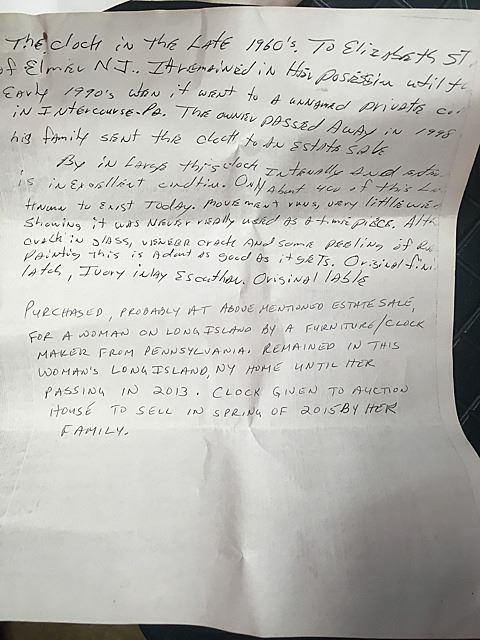 The clock in the Late 1960's. To Elizabeth St
of Elmer NJ.. It remained in Her Posestin until the
Early 1990's when it went to a unnamed private co
in Intercourse. Pa. The owner passed away in 1998
his family sent the clock to an Estate Sale
By in large this clock Internally and
is in Exosllent condtion. Only About 400 of this La
to Exist Today. Movement runs, very little we
Showing it was never really used as a time piece. Alth
crack in glass, veneer crack And some peeling of
Painting This is About as good as it gets. Original fini
latch, Ivory inlay Escuthan. Original lable
PURCHASED, PROBABLY AT ABOVE MENTIONED ESTATE SALE,
FOR A WOMAN ON LONG ISLAND BY A FURNITURE/CLOCK
MAKER FROM PENNSYLVANIA. REMAINED IN THIS
WOMAN'S LONG ISLAND, NY HOME UNTIL HER
PASSING IN 2013. CLOCK GIVEN TO AUCTION
HOUSE TO SELL IN SPRING OF 2015 BY HER
FAMILY.